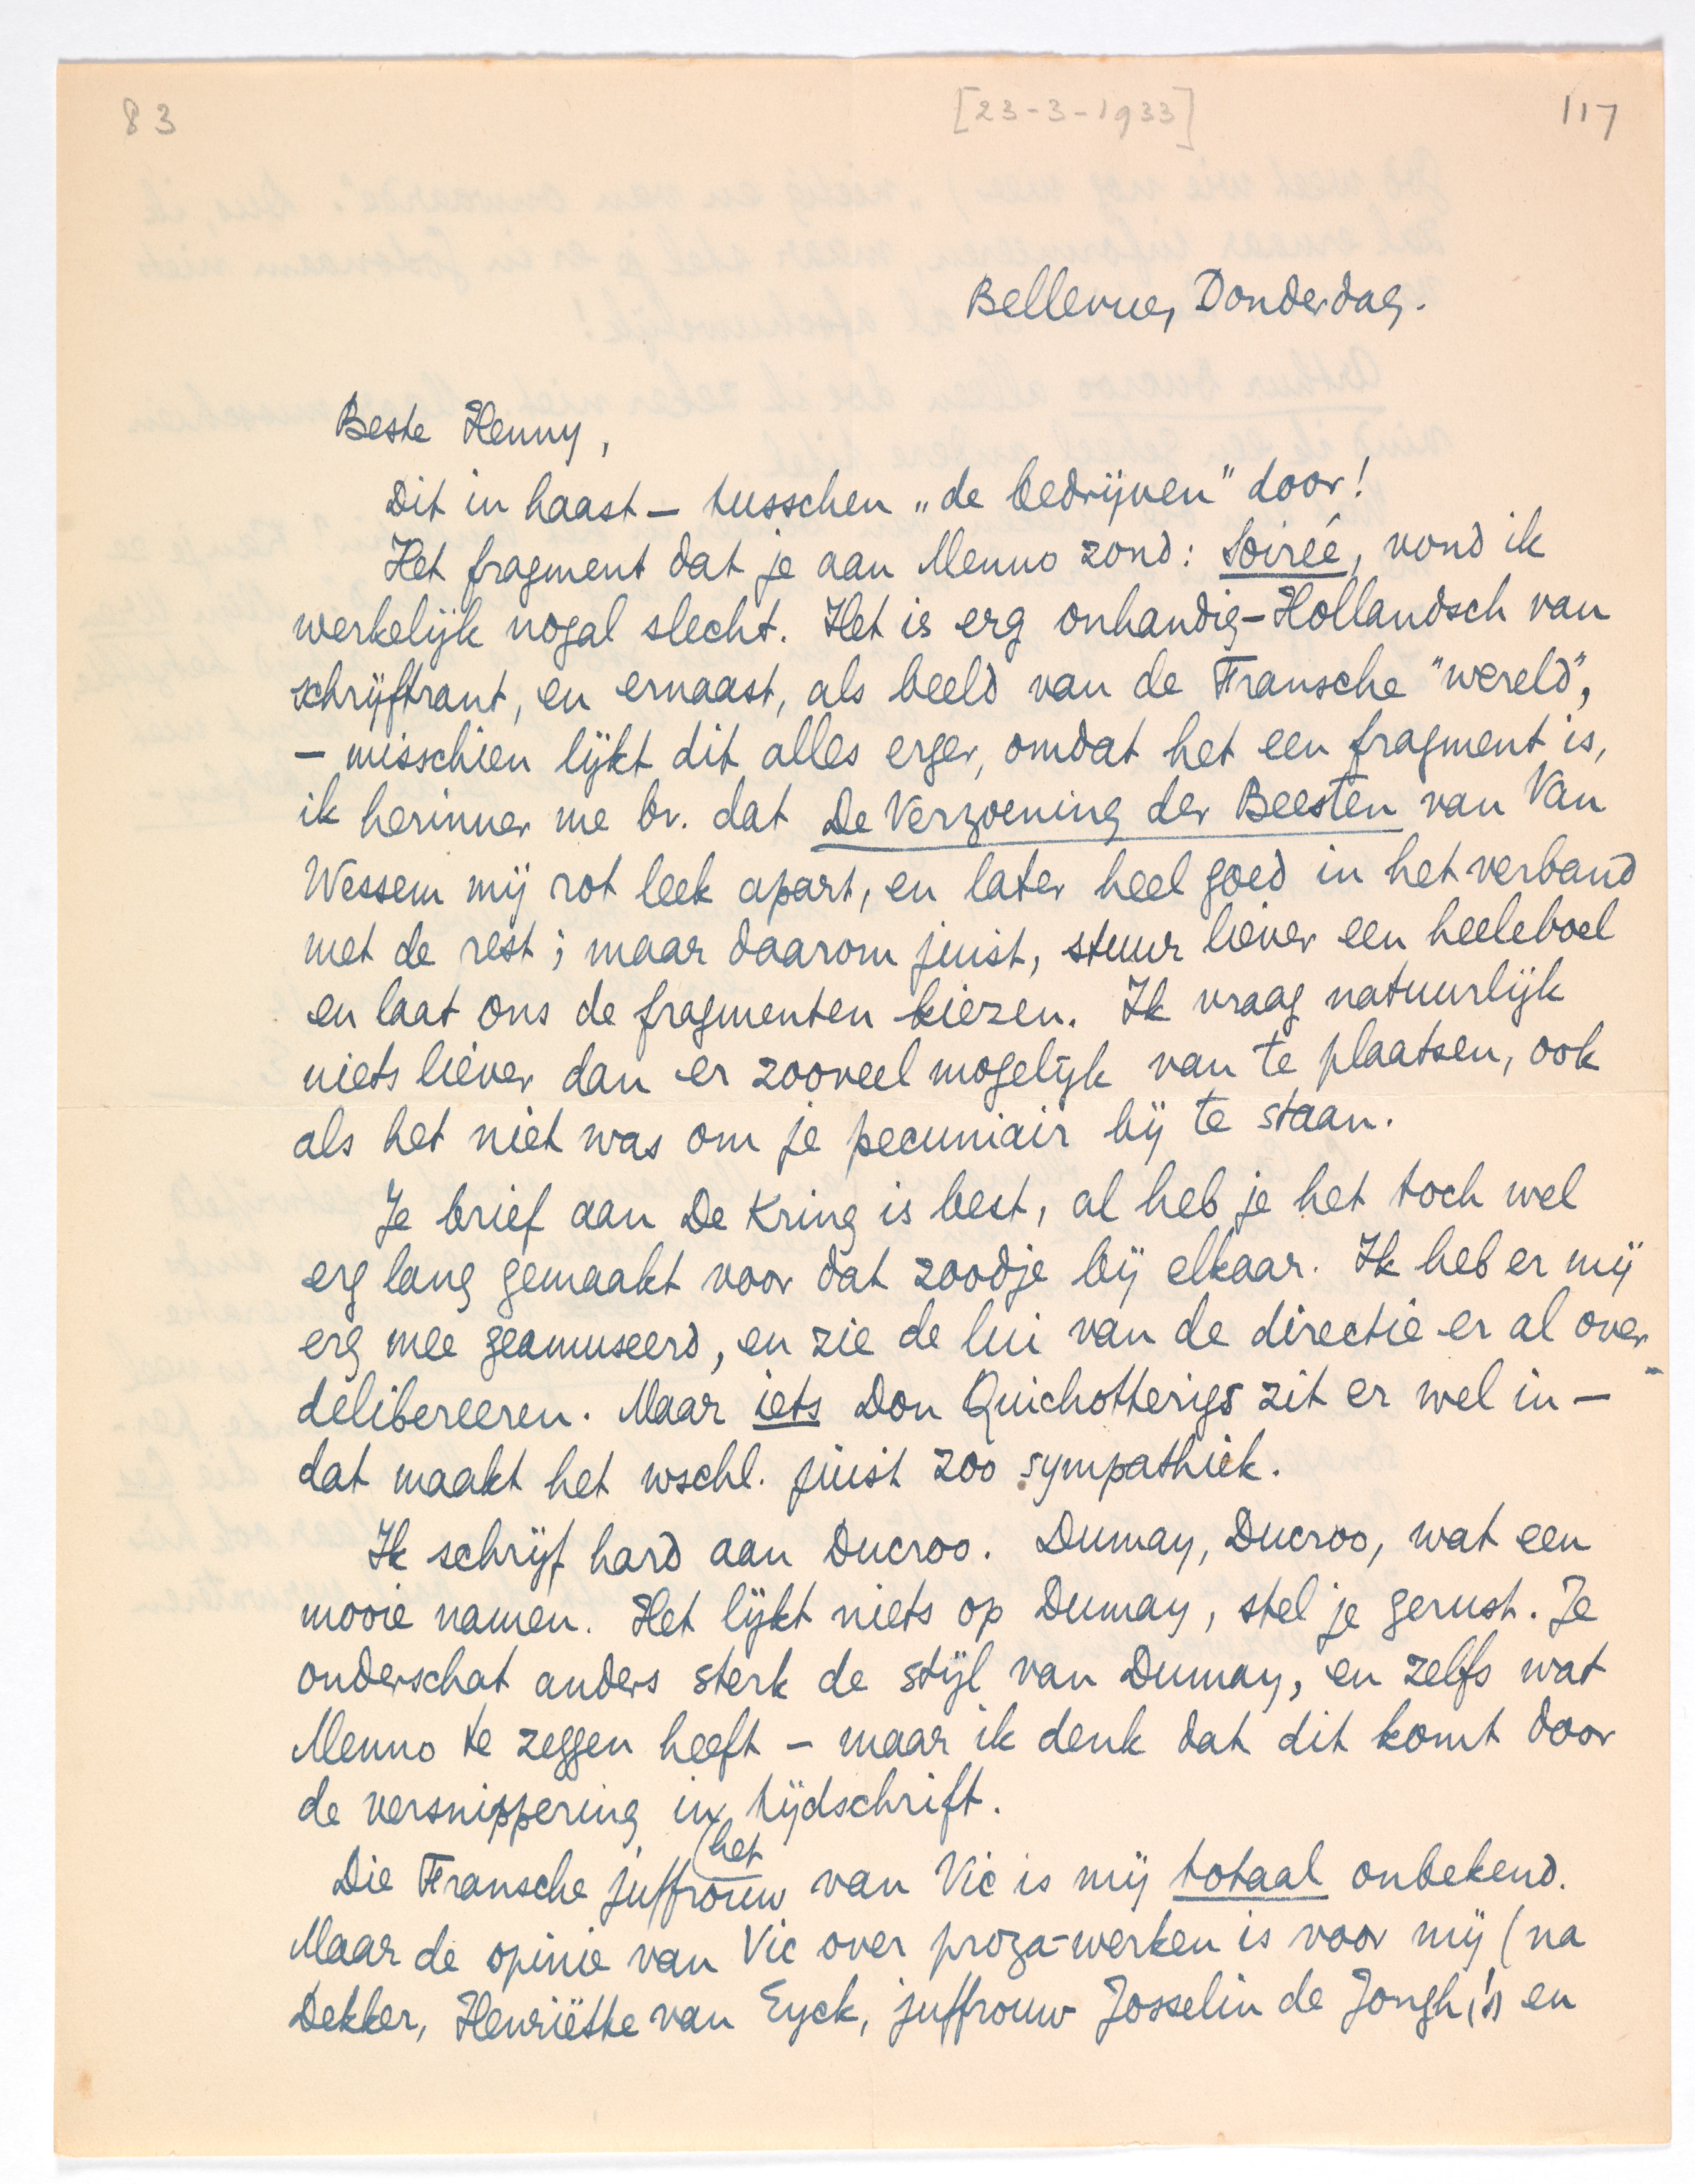 83
[23-3-1933]
117
Bellevue, Donderdag.
Beste Henny,
Dit in haast – tusschen „de bedrijven" door!
Het fragment dat je aan Menno zond: Soireé, vond ik
werkelijk nogal slecht. Het is erg onhandig-Hollandsch van
schrijftrant, en ernaast, als beeld van de Fransche "wereld",
– misschien lijkt dit alles erger, omdat het een fragment is,
ik herinner me bv. dat De Verzoening der Beesten van Van
Wessem mij rot leek apart, en later heel goed in het verband
met de rest; maar daarom juist, stuur liever een heeleboel
en laat ons de fragmenten kiezen. Ik vraag natuurlijk
niets liever dan er zooveel mogelijk van te plaatsen, ook
als het niet was om je pecuniair bij te staan.
Je brief aan De Kring is best, al heb je het toch wel
erg lang gemaakt voor dat zoodje bij elkaar. Ik heb er mij
erg mee geamuseerd, en zie de lui van de directie er al over
delibereeren. Maar iets Don Quichotterigs zit er wel in –
dat maakt het wschl. juist zoo sympathiek.
Ik schrijf hard aan Ducroo. Dumay, Ducroo, wat een
mooie namen. Het lijkt niets op Dumay, stel je gerust. Je
onderschat anders sterk de stijl van Dumay, en zelfs wat
Menno te zeggen heeft – maar ik denk dat dit komt door
de versnippering in het tijdschrift.
Die Fransche juffrouw van Vic is mij totaal onbekend.
Maar de opinie van Vic over proza-werken is voor mij (na
Dekker, Henriëtte van Eyck, juffrouw Josselin de Jongh, en